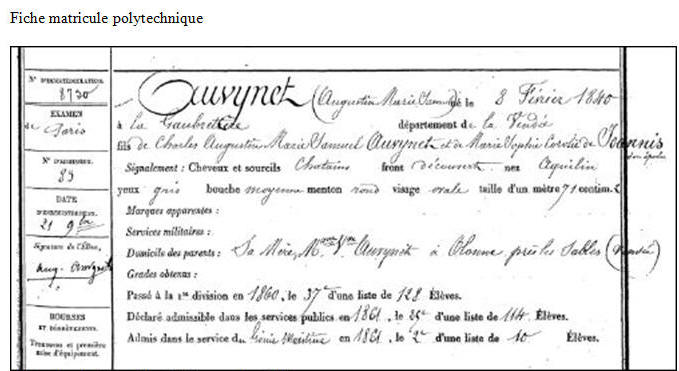 Fiche matricule polytechnique
N° D'IMMATRICULATION.
8730
EXAMEN
de Paris
N° D'ADMISSION.
89
DATE
D'ENREGISTREMENT.
21 9bre
Signature de l'Élève,
BOURSES
ET DÉGRÈVEMENTS.
Trousseau et première
mise d'équipement.
Auvynet (Augustin Marie Samuel) né le 8 Février 1840
à La Gaubretière département de la Vendée
fils de Charles Augustin Marie Samuel Auvynet et de Marie Sophie Coralie de Jeannis
son épouse
Signalement : Cheveux et sourcils Chatains front découvert nez Aquilin
yeux gris bouche moyenne menton rond visage ovale taille d'un mètre 71 centim.
Marques apparentes :
Services militaires :
Domicile des parents : Sa Mère, Mme Vve Auvynet à Olonne près les Sables (Vendée)
Grades obtenus :
Passé à la 1re division en 1860, le 37e d'une liste de 128 Élèves.
Déclaré admissible dans les services publics en 1861, le 35e d'une liste de 114 Élèves.
Admis dans le service du Génie Maritime en 1861, le 2e d'une liste de 10 Élèves.